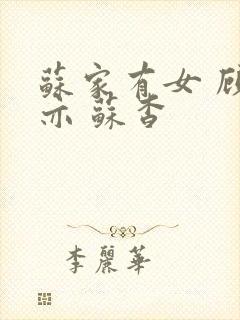 蘇家有女 顧
亦 蘇杳
李麗華